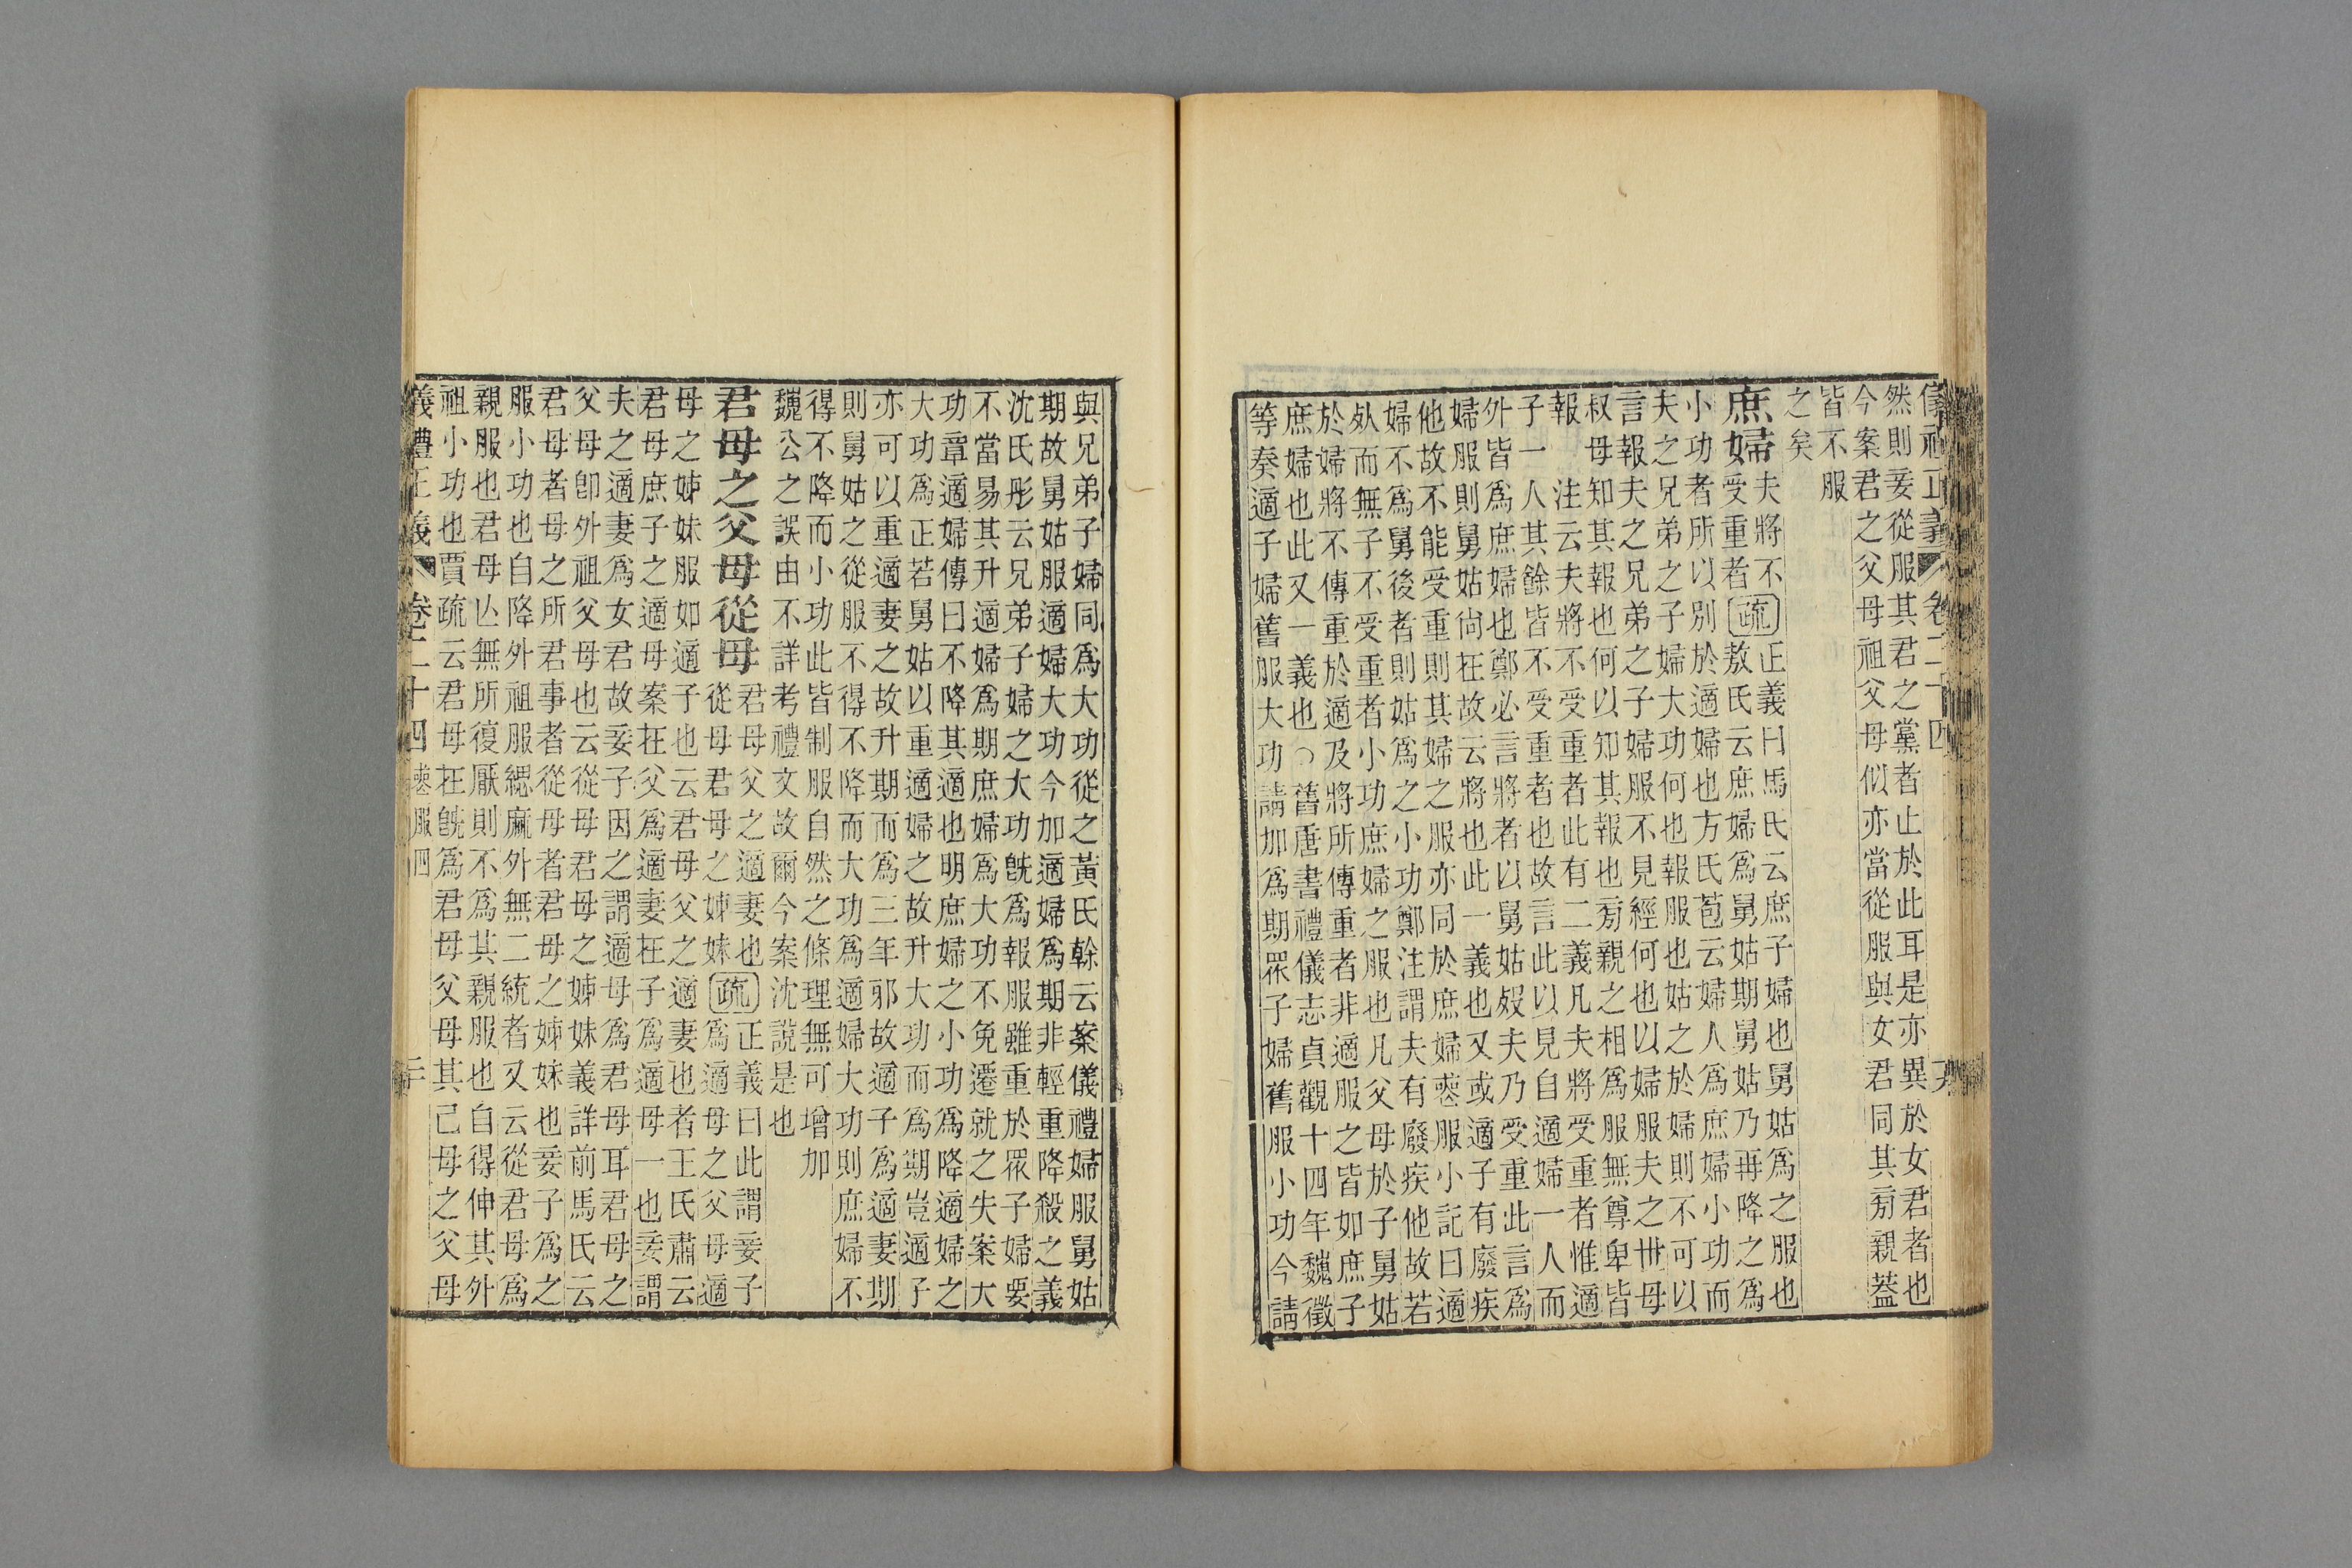 然則妾從服其君之黨者止於此耳是亦異於女君者也
今案君之父母祖父母似亦當從服與女君同其旁親蓋
皆不服
之矣
庶婦
夫將不
受重者
疏
正義曰馬氏云庶子婦也舅姑爲之服也
敖氏云庶婦爲舅姑期舅姑乃再降之爲
小功者所以別於適婦也方氏苞云婦人爲庶婦小功而
夫之兄弟之子婦大功何也報服也姑之於婦則不可以
言報夫之兄弟之子婦服不見經何也以婦服夫之世母
叔母知其報也何以知其報也旁親之相爲服無尊卑皆
報　注云夫將不受重者此有二義凡夫將受重者惟適
子一人其餘皆不受重者也故言此以見自適婦一人而
外皆爲庶婦也鄭必言將者以舅姑歿夫乃受重此言爲
婦服則舅姑尙在故云將也此一義也又或適子有廢疾
他故不能受重則其婦之服亦同於庶婦喪服小記曰適
婦不爲舅後者則姑爲之小功鄭注謂夫有廢疾他故若
死而無子不受重者小功庶婦之服也凡父母於子舅姑
於婦將不傳重於適及將所傳重者非適服之皆如庶子
庶婦也此又一義也○舊唐書禮儀志貞觀十四年魏徵
等奏適子婦舊服大功請加爲期眾子婦舊服小功今請
與兄弟子婦同爲大功從之黃氏榦云案儀禮婦服舅姑
期故舅姑服適婦大功今加適婦爲期非輕重降殺之義
沈氏彤云兄弟子婦之大功旣爲報服雖重於眾子婦要
不當易其升適婦爲期庶婦爲大功不免遷就之失案大
功章適婦傳曰不降其適也明庶婦之小功爲降適婦之
大功爲正若舅姑以重適婦之故升大功而爲期豈適子
亦可以重適妻之故升期而爲三年邪故適子爲適妻期
則舅姑之從服不得不降而大功爲適婦大功則庶婦不
得不降而小功此皆制服自然之條理無可增加
魏公之誤由不詳考禮文故爾今案沈說是也
君母之父母從母
君母父之適妻也
從母君母之姊妹
疏
正義曰此謂妾子
爲適母之父母適
母之姊妹服如適子也云君母父之適妻也者王氏肅云
君母庶子之適母案在父爲適妻在子爲適母一也妾謂
夫之適妻爲女君故妾子因之謂適母爲君母耳君母之
父母卽外祖父母也云從母君母之姊妹義詳前馬氏云
君母者母之所君事者從母者君母之姊妹也妾子爲之
服小功也自降外祖服緦麻外無二統者又云從君母爲
親服也君母亾無所復厭則不爲其親服也自得伸其外
祖小功也賈疏云君母在旣爲君母父母其己母之父母
義禮正義 卷二十四 喪服四